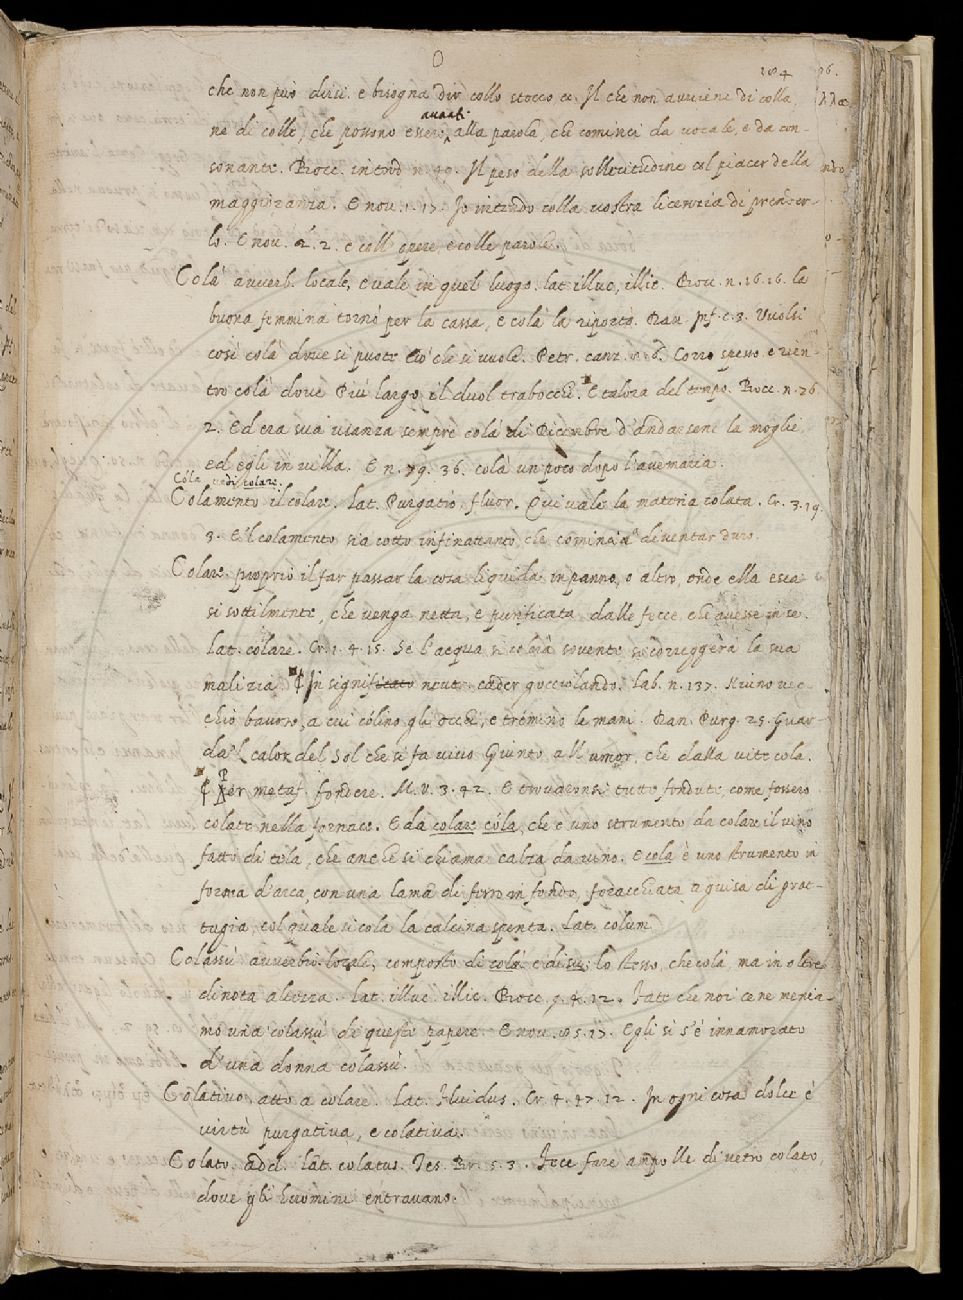 184
che non può dirsi. e bisogna dir collo stocco ec. Il che non avviene di colla,
avanti
ne di colle, che possono essere alla parola, che cominci da vocale, e da con-
sonante. Bocc. introd n. 40. Il peso della sollecitudine col piacer della
maggioranza. E nov. 1. 17. Io intendo colla vostra licenzia di prender-
lo. E nov. 2. 2. e coll opere, e colle parole.
Colà avverb. locale, e vale in quel luogo. lat. illuc, illic. Bocc. n. 16. 16. la
buona femmina tornò per la cassa, e colà la riportò. Dan. Inf. c. 3. Vuolsi
così colà dove si puote Ciò che si vuole. Petr. canz. Corro spesso, e rien-
tro colà dove Più largo il duol trabocchi. E talora del tempo. Bocc. n. 76
2. Ed era sua usanza sempre colà di Dicembre d'andarsene la moglie,
ed egli in villa. E n. 79. 36. colà un poco dopo l'avemaria.
Cóla vedi colare.
Colamento il colare. Lat. Purgatio, fluor. Qui vale la materia colata. Cr. 3. 19.
3. E 'l colamento sia cotto infinattanto, che comincia a diventar duro.
Colare. proprio il far passar la cosa liquida in panno, o altro, onde ella esca
si sottilmente, che venga netta, e purificata dalle fecce, che avesse in se.
Lat. colare. Cr. 1. 4. 15. Se l'acqua si colerà sovente si correggerà la sua
malizia. In significato neut. cader gocciolando. Lab. n. 137. Niuno vec-
chio bavoso, a cui cólino gli occhi, e trémino le mani. Dan. Purg. 25. Guar-
da 'l calor del Sol che si fa vino Giunto all'umor, che dalla vite cola.
Per metaf. fondere. M. V. 3. 42. E trovaronsi tutte fondute come fossero
colate nella fornace. E da colare cóla, che è uno strumento da colare il vino
fatto di tela, che anche si chiama calza da vino. e cola è uno strumento in
forma d'arca, con una lama di ferro in fondo, foracchiata a guisa di grat-
tugia, col quale si cola la calcina spenta. Lat. colum.
Colassù avverbio locale, composto di colà e di su; lo stesso, che colà, ma in oltre
dinota altezza. lat. illuc, illic. Bocc. g. 4. 12. Fate che noi ce ne menia-
mo una colassù di queste papere. E nov. 85. 17. Egli si s'è innamorato
d'una donna colassù.
Colativo, atto a colare. Lat. Fluidus. Cr. 4. 47. 12. In ogni cosa dolce è
virtù purgativa, e colativa.
Colato. add. lat. colatus. Tes. Br. 5. 3. Fece fare ampolle di vetro colato,
dove gli huomini entravano.